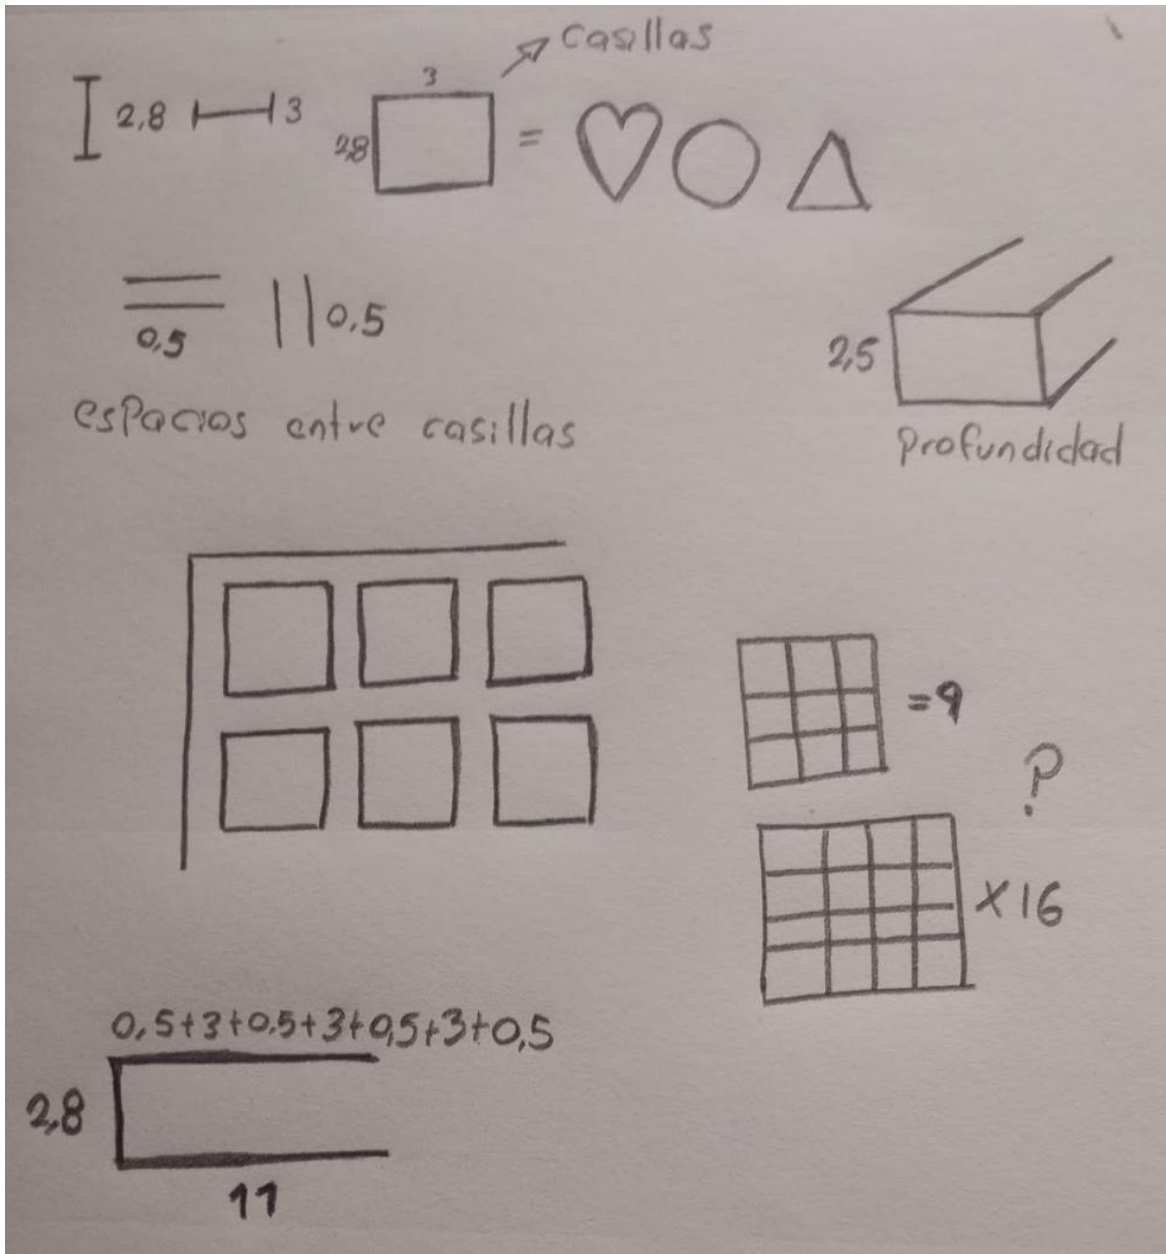 casillas
2,8 3
3
2,8 =
0,5 0,5
espacios entre casillas
2,5
profundidad
=9
?
x16
0,5+3+0,5+3+0,5+3+0,5
2,8
11